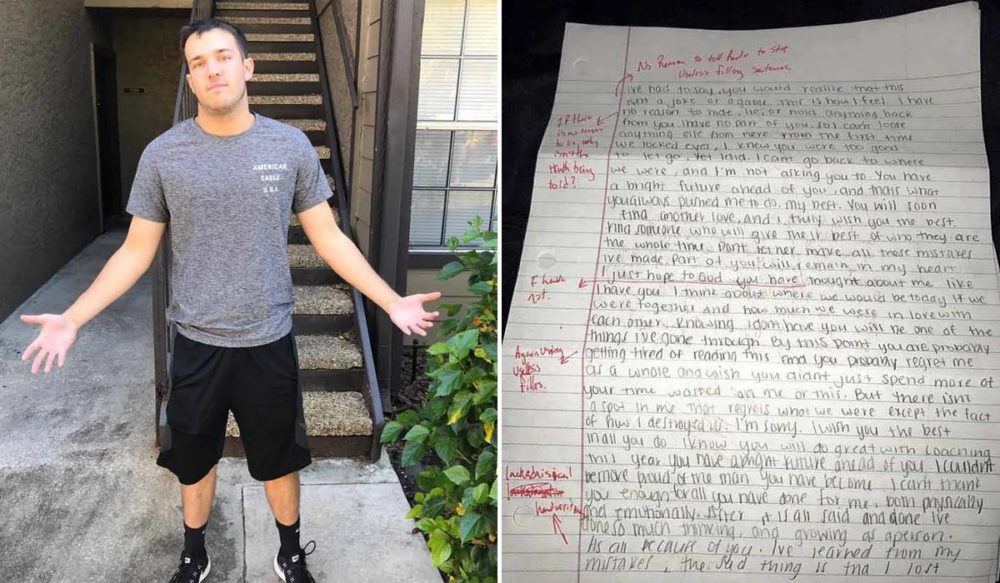 AMERICAN
EAGLE
USA
No Reason to tell Reader to stop
Useless filling sentence.
If there
is no reason
to lie, why
isn't the
truth being
told?
I've had to say, you would realize that this
isnt a joke or a game. This is how I feel. I have
no reason to hide, lie, or hold anything back
from you. I have no part of you, so I cant loose
anything else from here. From the first time
we locked eyes, I knew you were too good
to let go. Yet I did. I cant go back to where
we were, and I'm not asking you to. You have
a bright future ahead of you, and thats what
you always pushed me to do, my best. You will soon
find another love, and i truly wish you the best.
Find someone who will give their best of who they are
the whole time. Dont let her make all these mistakes
I've made. Part of you will remain in my heart
I just hope to God you have thought about me like
I have not.
I have you. I think about where we would be today if we
were together and how much we were in love with
each other. Knowing I dont have you will be one of the
things I've gone through. By this point you are probably
Again using
useless
filler.
getting tired of reading this and you probably regret me
as a whole and wish you didnt just spend more of
your time wasted on me or this. But there isnt
a spot in me that regrets what we were except the fact
of how I destroyed us. I'm sorry. I wish you the best
in all you do. I know you will do great with coaching
this year. You have a bright future ahead of you. I couldn't
be more proud of the man you have become. I cant thank
you enough for all you have done for me, both physically
lackadaisical
handwriting
and emotionally. After it is all said and done I've
done so much thinking, and growing as a person.
Its all because of you. I've learned from my
mistakes, the sad thing is tha I lost